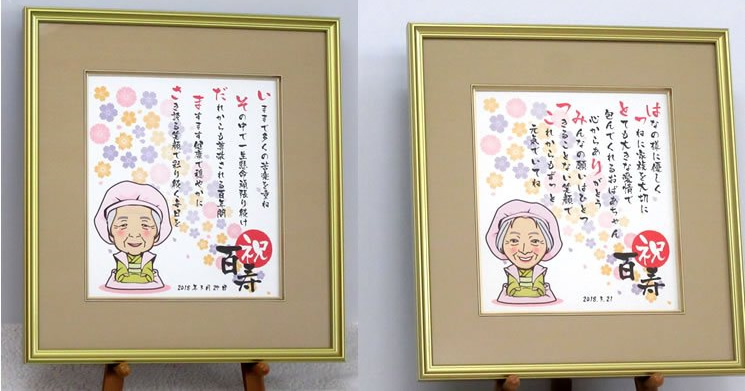 いままで多くの苦楽を重ね
その中で一生懸命頑張り続け
だれからも尊敬される百年間
ますます健康で穏やかに
さき誇る笑顔で彩り続く毎日を
祝
百寿
はなの様に優しく
つねに家族を大切に
とても大きな愛情で
包んでくれるおばあちゃん
心からありがとう
みんなの願いはひとつ
つきることない笑顔で
これからもずっと
元気でいてね
祝
百寿